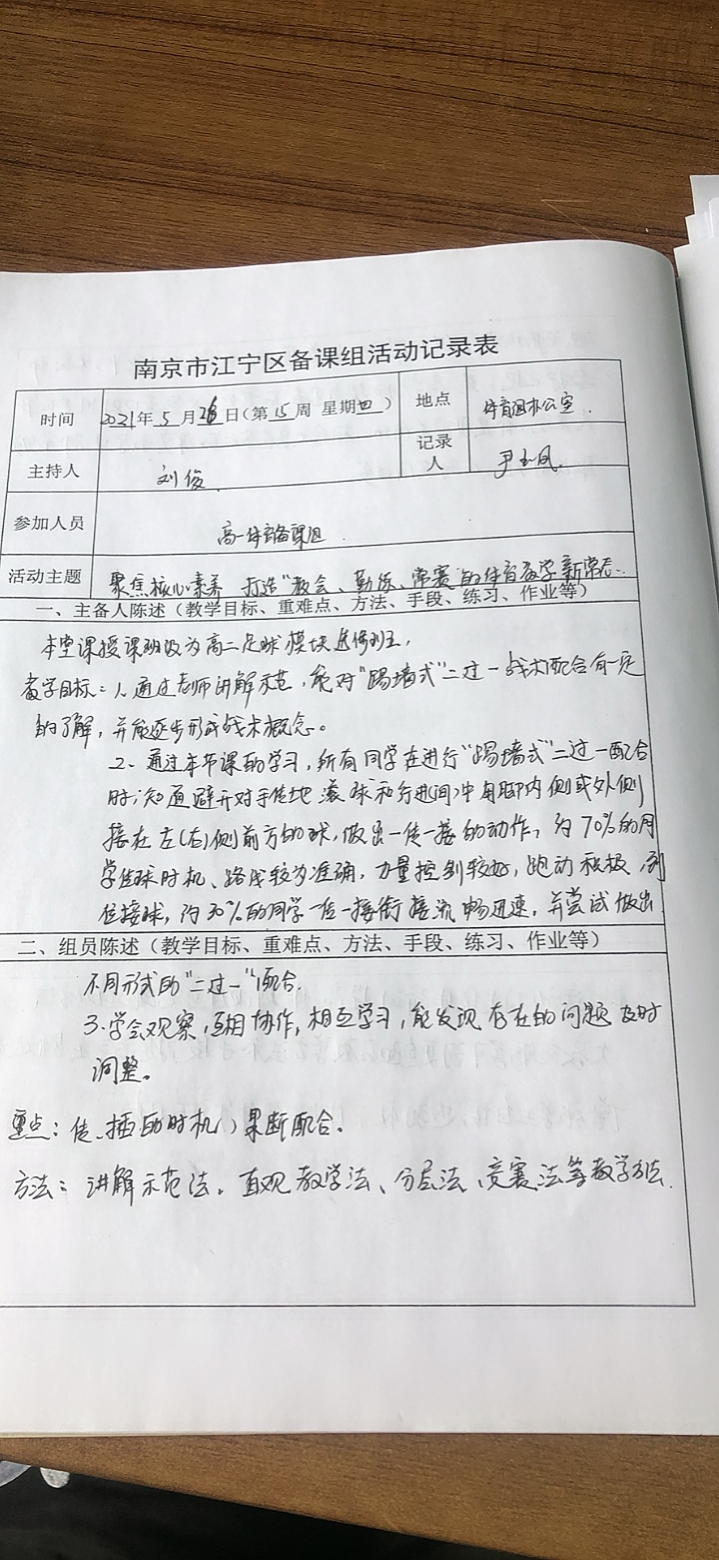 南京市江宁区备课组活动记录表
时间 2021年 5 月 26 日(第 15 周 星期四) 地点 体育组办公室.
主持人 刘俊 记录人 尹玉凤
参加人员 高一体育备课组
活动主题 聚焦核心素养 打造“教会、勤练、常赛”的体育教学新常态.
一、主备人陈述(教学目标、重难点、方法、手段、练习、作业等)
本堂课授课班级为高二足球模块选修班,
教学目标:1、通过老师讲解示范,能对“踢墙式”二过一战术配合有一定
的了解,并能逐步形成战术概念。
2、通过本节课的学习,所有同学在进行“踢墙式”二过一配合
时,知道避开对手传地滚球和行进间中用脚内侧或外侧
接在左(右)侧前方的球,做出一传一接的动作,约70%的同
学传球时机、路线较为准确,力量控制较好,跑动积极,到
位接球,约30%的同学一传一接衔接流畅迅速,并尝试做出
二、组员陈述(教学目标、重难点、方法、手段、练习、作业等)
不同形式的“二过一”配合.
3.学会观察,互相协作,相互学习,能发现存在的问题及时
调整。
重点:传、插的时机,果断配合.
方法:讲解示范法、直观教学法、分层法、竞赛法等教学方法.